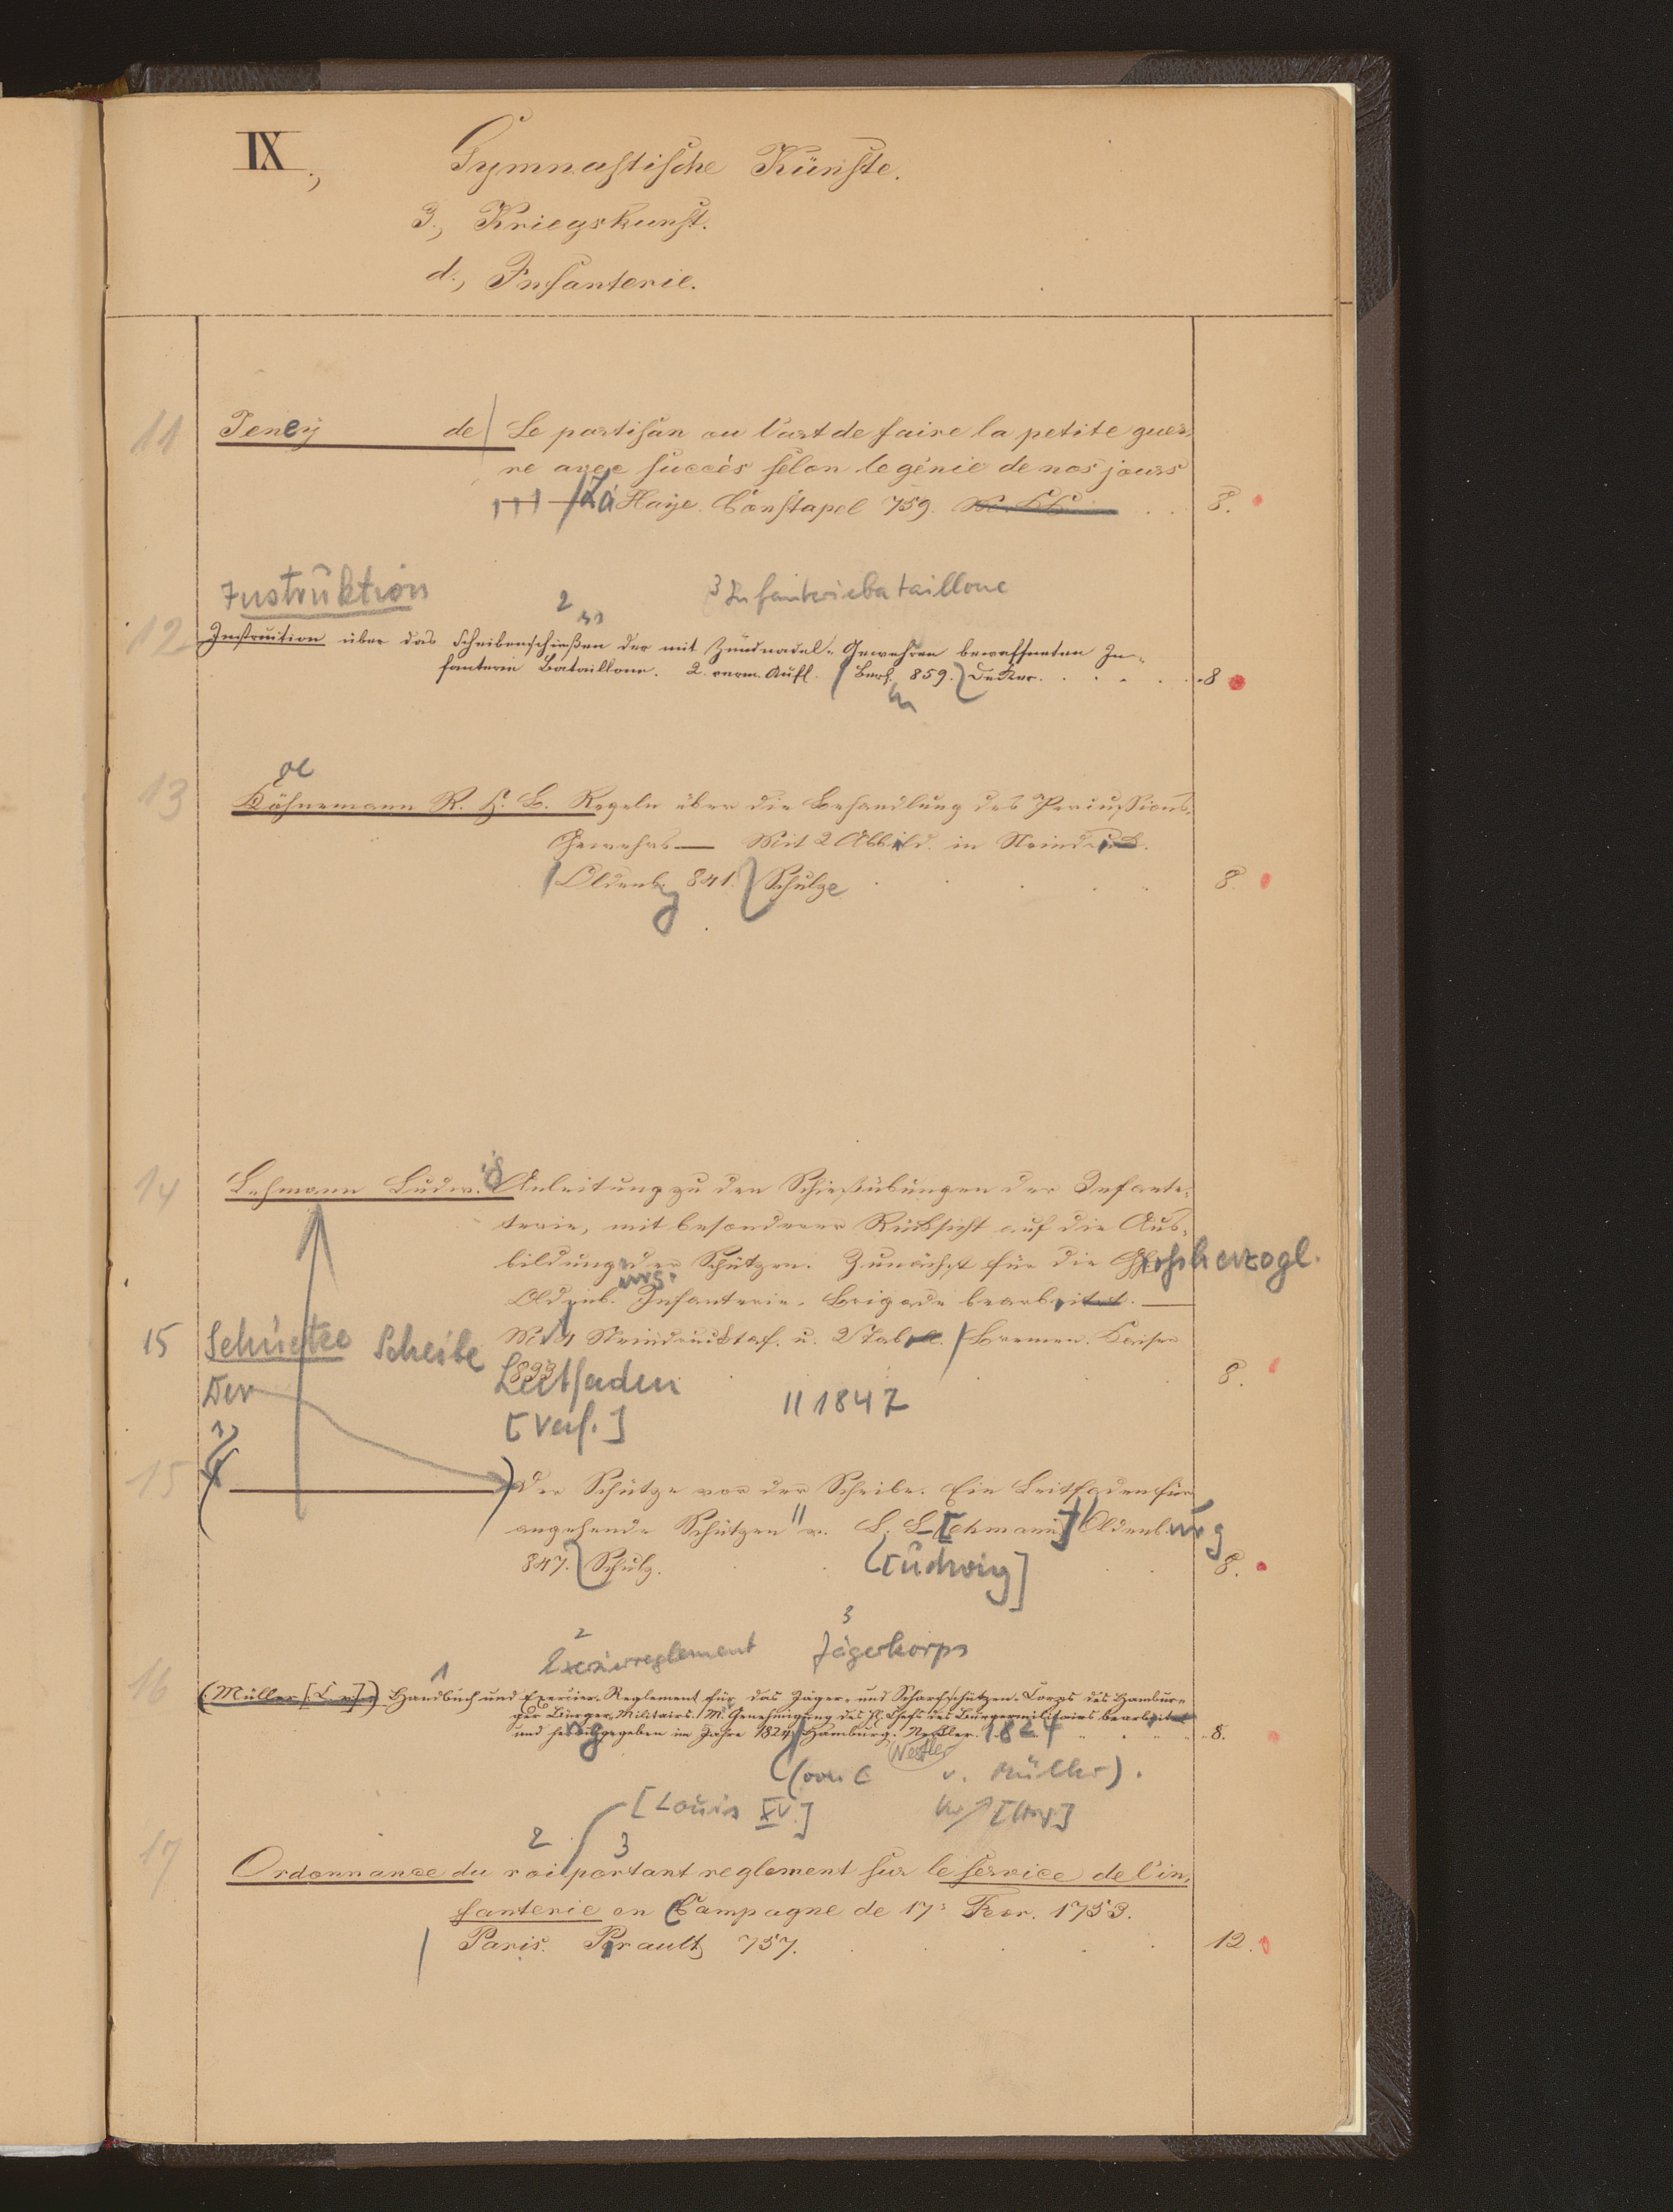 IX., Gymnastische Künste.
3., Kriegskunst.
d., Infanterie.
11 Jeney de Le partisan ou l'art de faire la petite guer-
re avec succès selon le génie de nos jours
La Haye. Constapel 759. 8.
Instruktion 2 3 Infanteriebataillone
12 Instruction über das Scheibenschießen der mit Zündnadel-Gewehren bewaffneten In-
fanterie Bataillone. 2. verm. Aufl. Berl. 859. Decker. 8
oe
13 Köhnemann R. H. B. Regeln über die Behandlung des Percussions-
Gewehrs — Mit 2 Abbild. in Steindruck.
Oldenb. 841. Schulze 8.
14 Lehmann Ludw. Anleitung zu den Schießübungen der Infante-
terie, mit besonderer Rücksicht auf die Aus-
bildung der Schützen. Zunächst für die Großherzogl.
Oldenb. Infanterie-Brigade bearbeitet. —
Mit 4 Steindrucktaf. u. 2 Tab. Bremen. Kaiser
15 Schütze Scheibe
Der Leitfaden 8.
[Verf.] 11 1847
15 Der Schütze vor der Scheibe. Ein Leitfaden für
angehende Schützen v. L. L[ehmann] Oldenburg
847. Schulz. [Ludwig] 8.
2 Exerzierreglement 3 Jägerkorps
16 (Müller [C. v.]) 1 Handbuch und Exercier-Reglement für das Jäger- und Scharfschützen-Corps des Hambur-
ger Bürger-Militairs. M. Genehmigung des H. Chefs des Bürgermilitairs bearbeitet
und herausgegeben im Jahre 1824. Hamburg. Nestler. 1824 8.
Nestler
(von C v. Müller).
[Louis XV.]
2 3
17 Ordonnance du roi portant reglement sur le service de l'in-
fanterie en Campagne de 17: Fevr. 1753.
Paris. Prault 757. 12.